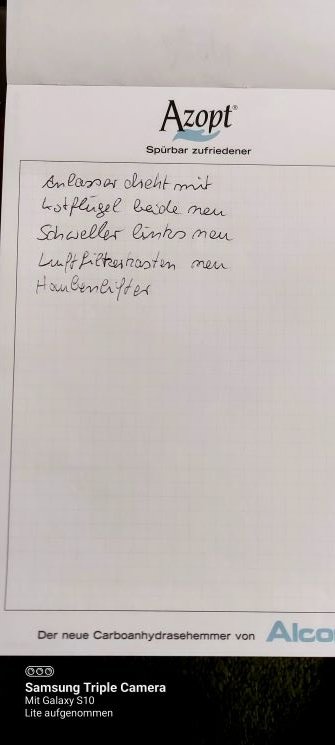 Azopt®
Spürbar zufriedener
Anlasser dreht mit
Kotflügel beide neu
Schweller links neu
Luftfilterkasten neu
Haubenlifter
Der neue Carboanhydrasehemmer von Alco
Samsung Triple Camera
Mit Galaxy S10
Lite aufgenommen